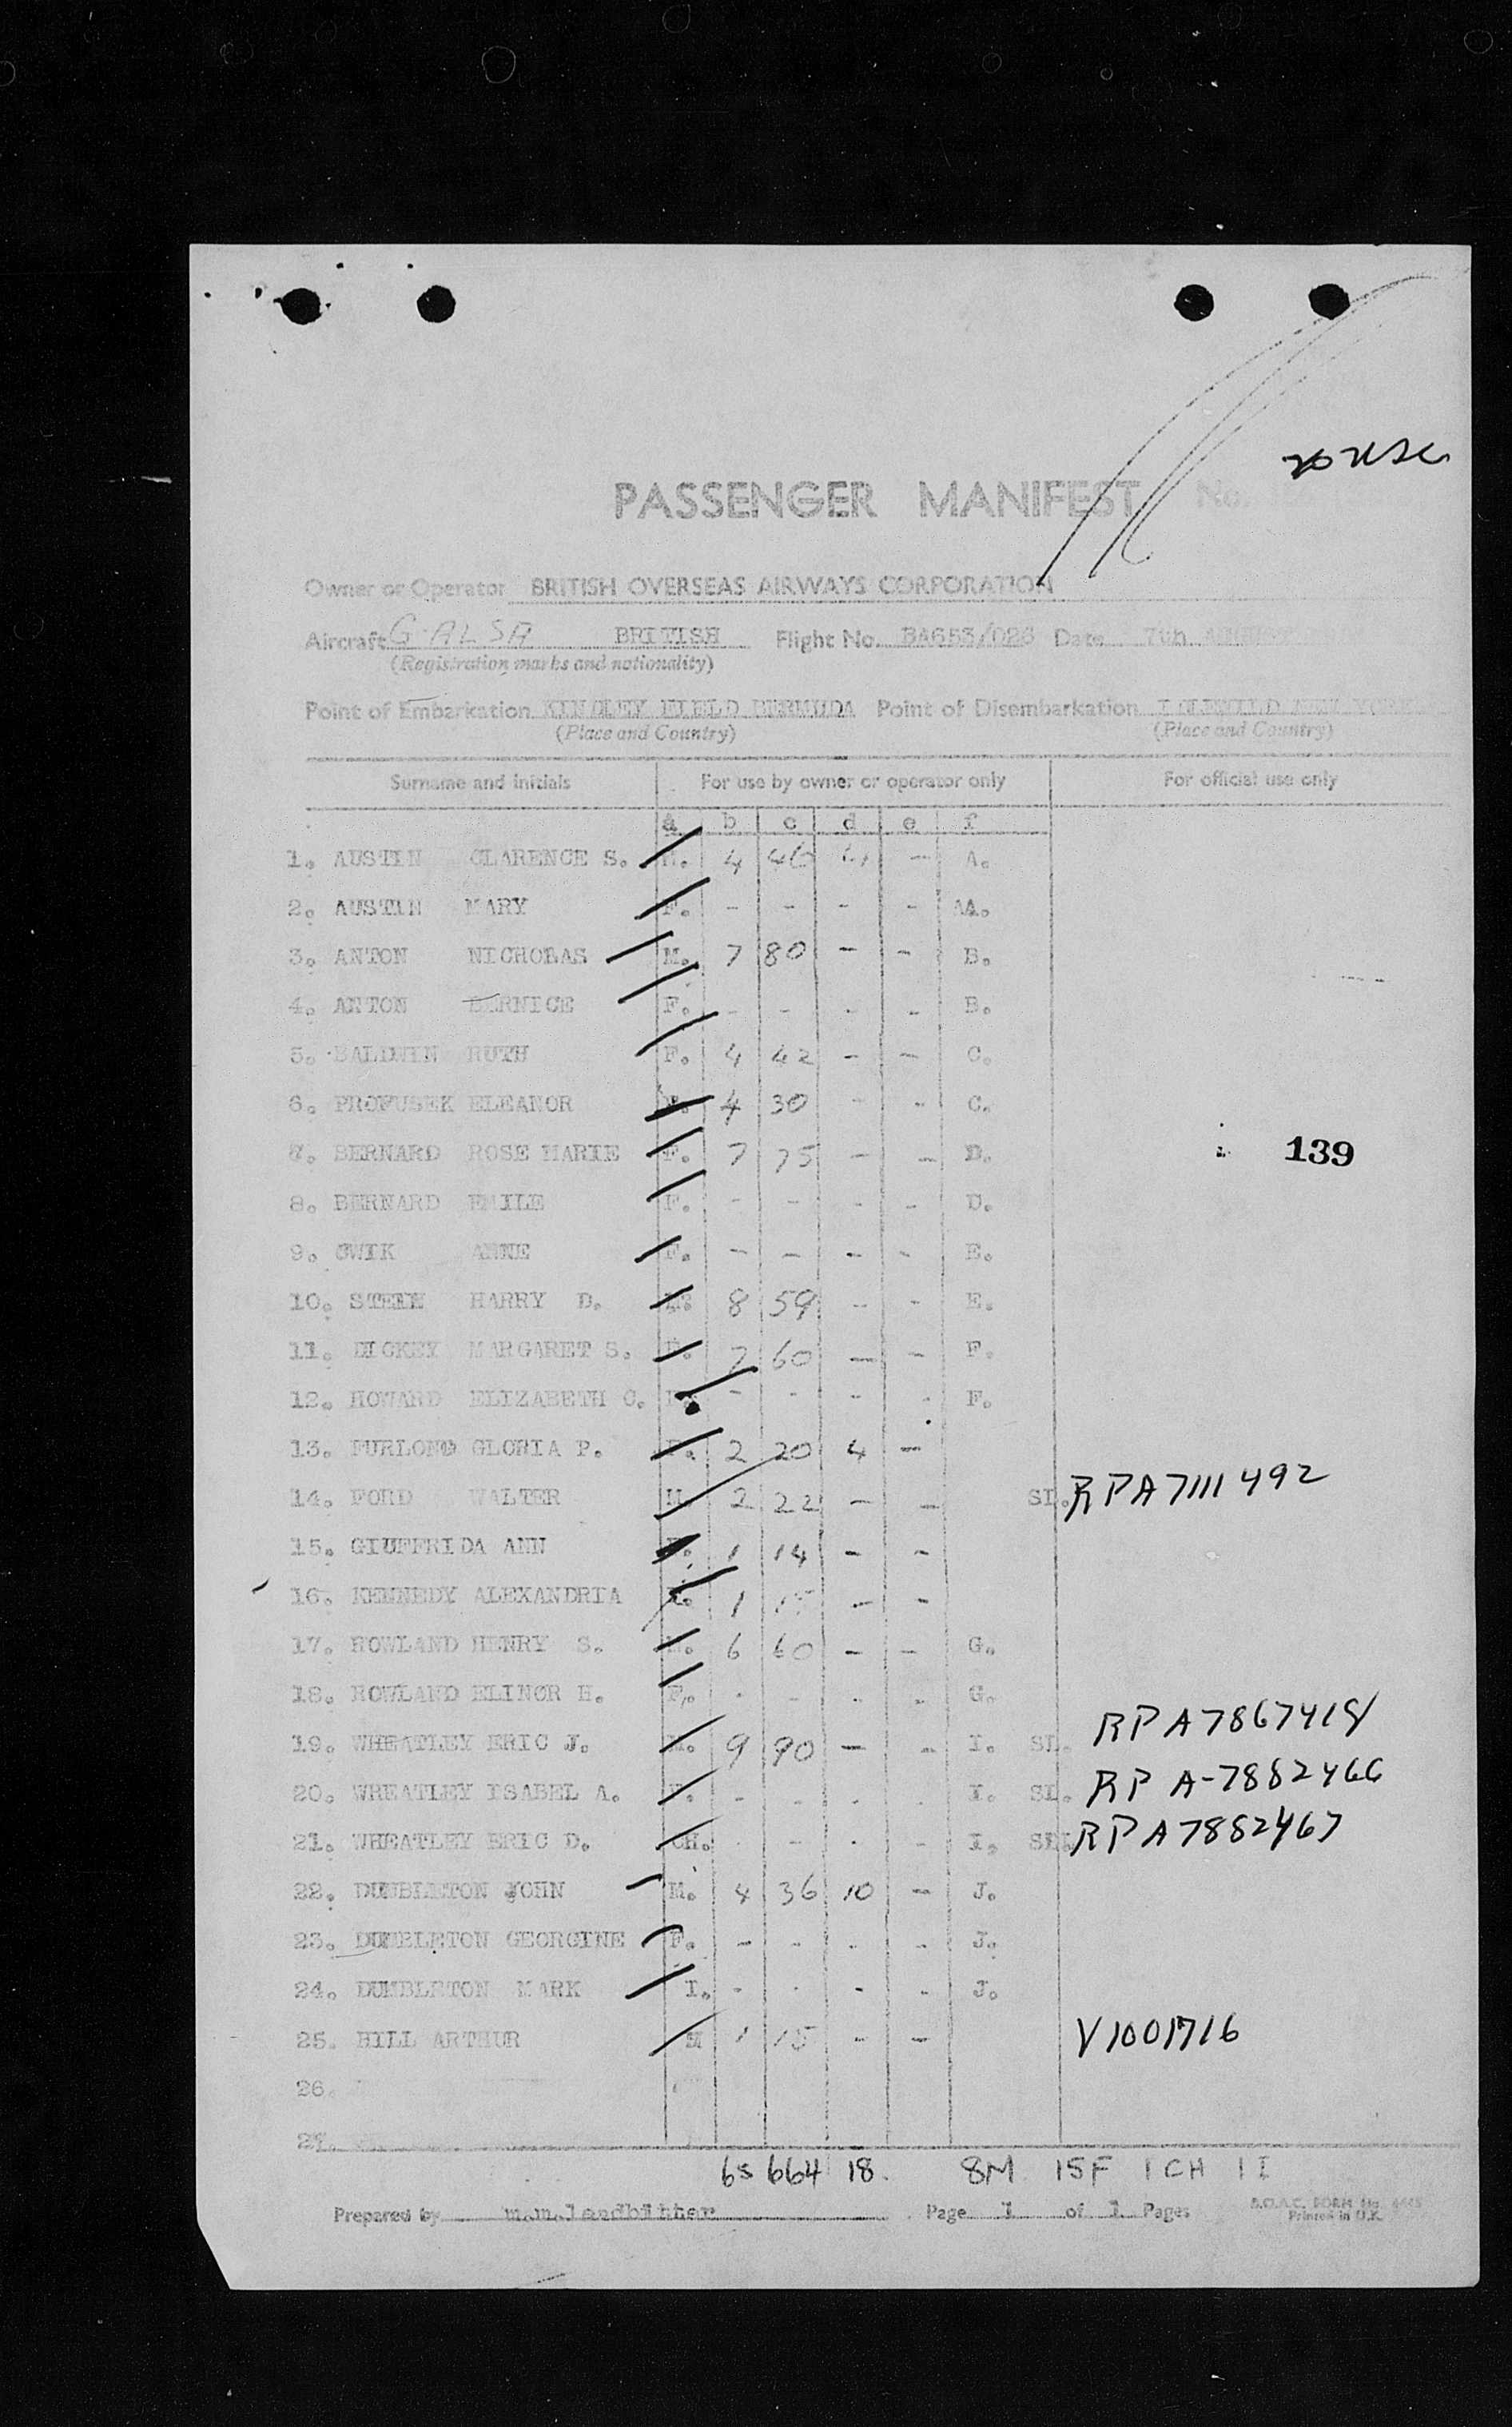 PASSENGER MANIFEST No.
Owner or Operator BRITISH OVERSEAS AIRWAYS CORPORATION
Aircraft G-ALSA BRITISH Flight No. BA653/026 Date 7th
(Registration marks and nationality)
Point of Embarkation KINDLEY FIELD BERMUDA Point of Disembarkation IDLEWILD NEW YORK
(Place and Country) (Place and Country)
Surname and initials For use by owner or operator only For official use only
a b c d e f
1. AUSTIN CLARENCE S. M. 4 46 4 - A.
2. AUSTIN MARY F. - - - - AA.
3. ANTON NICHOLAS M. 7 80 - - B.
4. ANTON BERNICE F. - - - - B.
5. BALDWIN RUTH F. 4 42 - - C.
6. PROFUSEK ELEANOR F. 4 30 - - C.
139
7. BERNARD ROSE MARIE F. 7 75 - - D.
8. BERNARD EMILE F. - - - - D.
9. CWIK ANNE F. - - - - E.
10. STEIN HARRY D. M. 8 59 - - E.
11. DICKEY MARGARET S. F. 7 60 - - F.
12. HOWARD ELIZABETH C. F. - - - - F.
13. FURLONG GLORIA P. F. 2 20 4 -
14. FORD WALTER M. 2 22 - - SL. RPA7111492
15. GIUFFRIDA ANN F. 1 14 - -
16. KENNEDY ALEXANDRIA F. 1 15 - -
17. ROWLAND HENRY S. M. 6 60 - - G.
18. ROWLAND ELINOR H. F. - - - - G.
19. WHEATLEY ERIC J. M. 9 90 - - I. SL. RPA7867418
20. WHEATLEY ISABEL A. F. - - - - I. SL. RP A-7882466
21. WHEATLEY ERIC D. CH. - - - - I. SL. RPA7882467
22. DUMBLETON JOHN M. 4 36 10 - J.
23. DUMBLETON GEORGINE F. - - - - J.
24. DUMBLETON MARK I. - - - - J.
25. HILL ARTHUR M 1 15 - - V1001716
26.
27.
65 664 18. 8M 15F 1CH 1I
Prepared by m.m.landbitter Page 1 of 1 Pages
B.O.A.C. FORM No.
Printed in U.K.